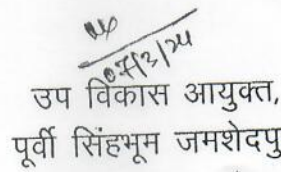 07/3/24
उप विकास आयुक्त,
पूर्वी सिंहभूम जमशेदपु